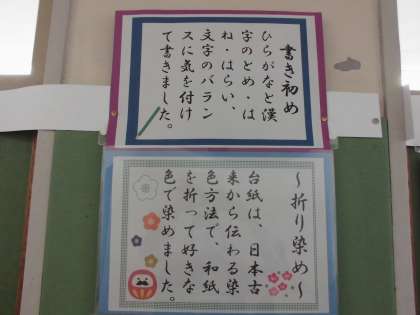 書き初め
ひらがなと漢
字のとめ・は
ね・はらい、
文字のバラン
スに気を付け
て書きました。
～折り染め～
台紙は、日本古
来から伝わる染
色方法で、和紙
を折って好きな
色で染めました。